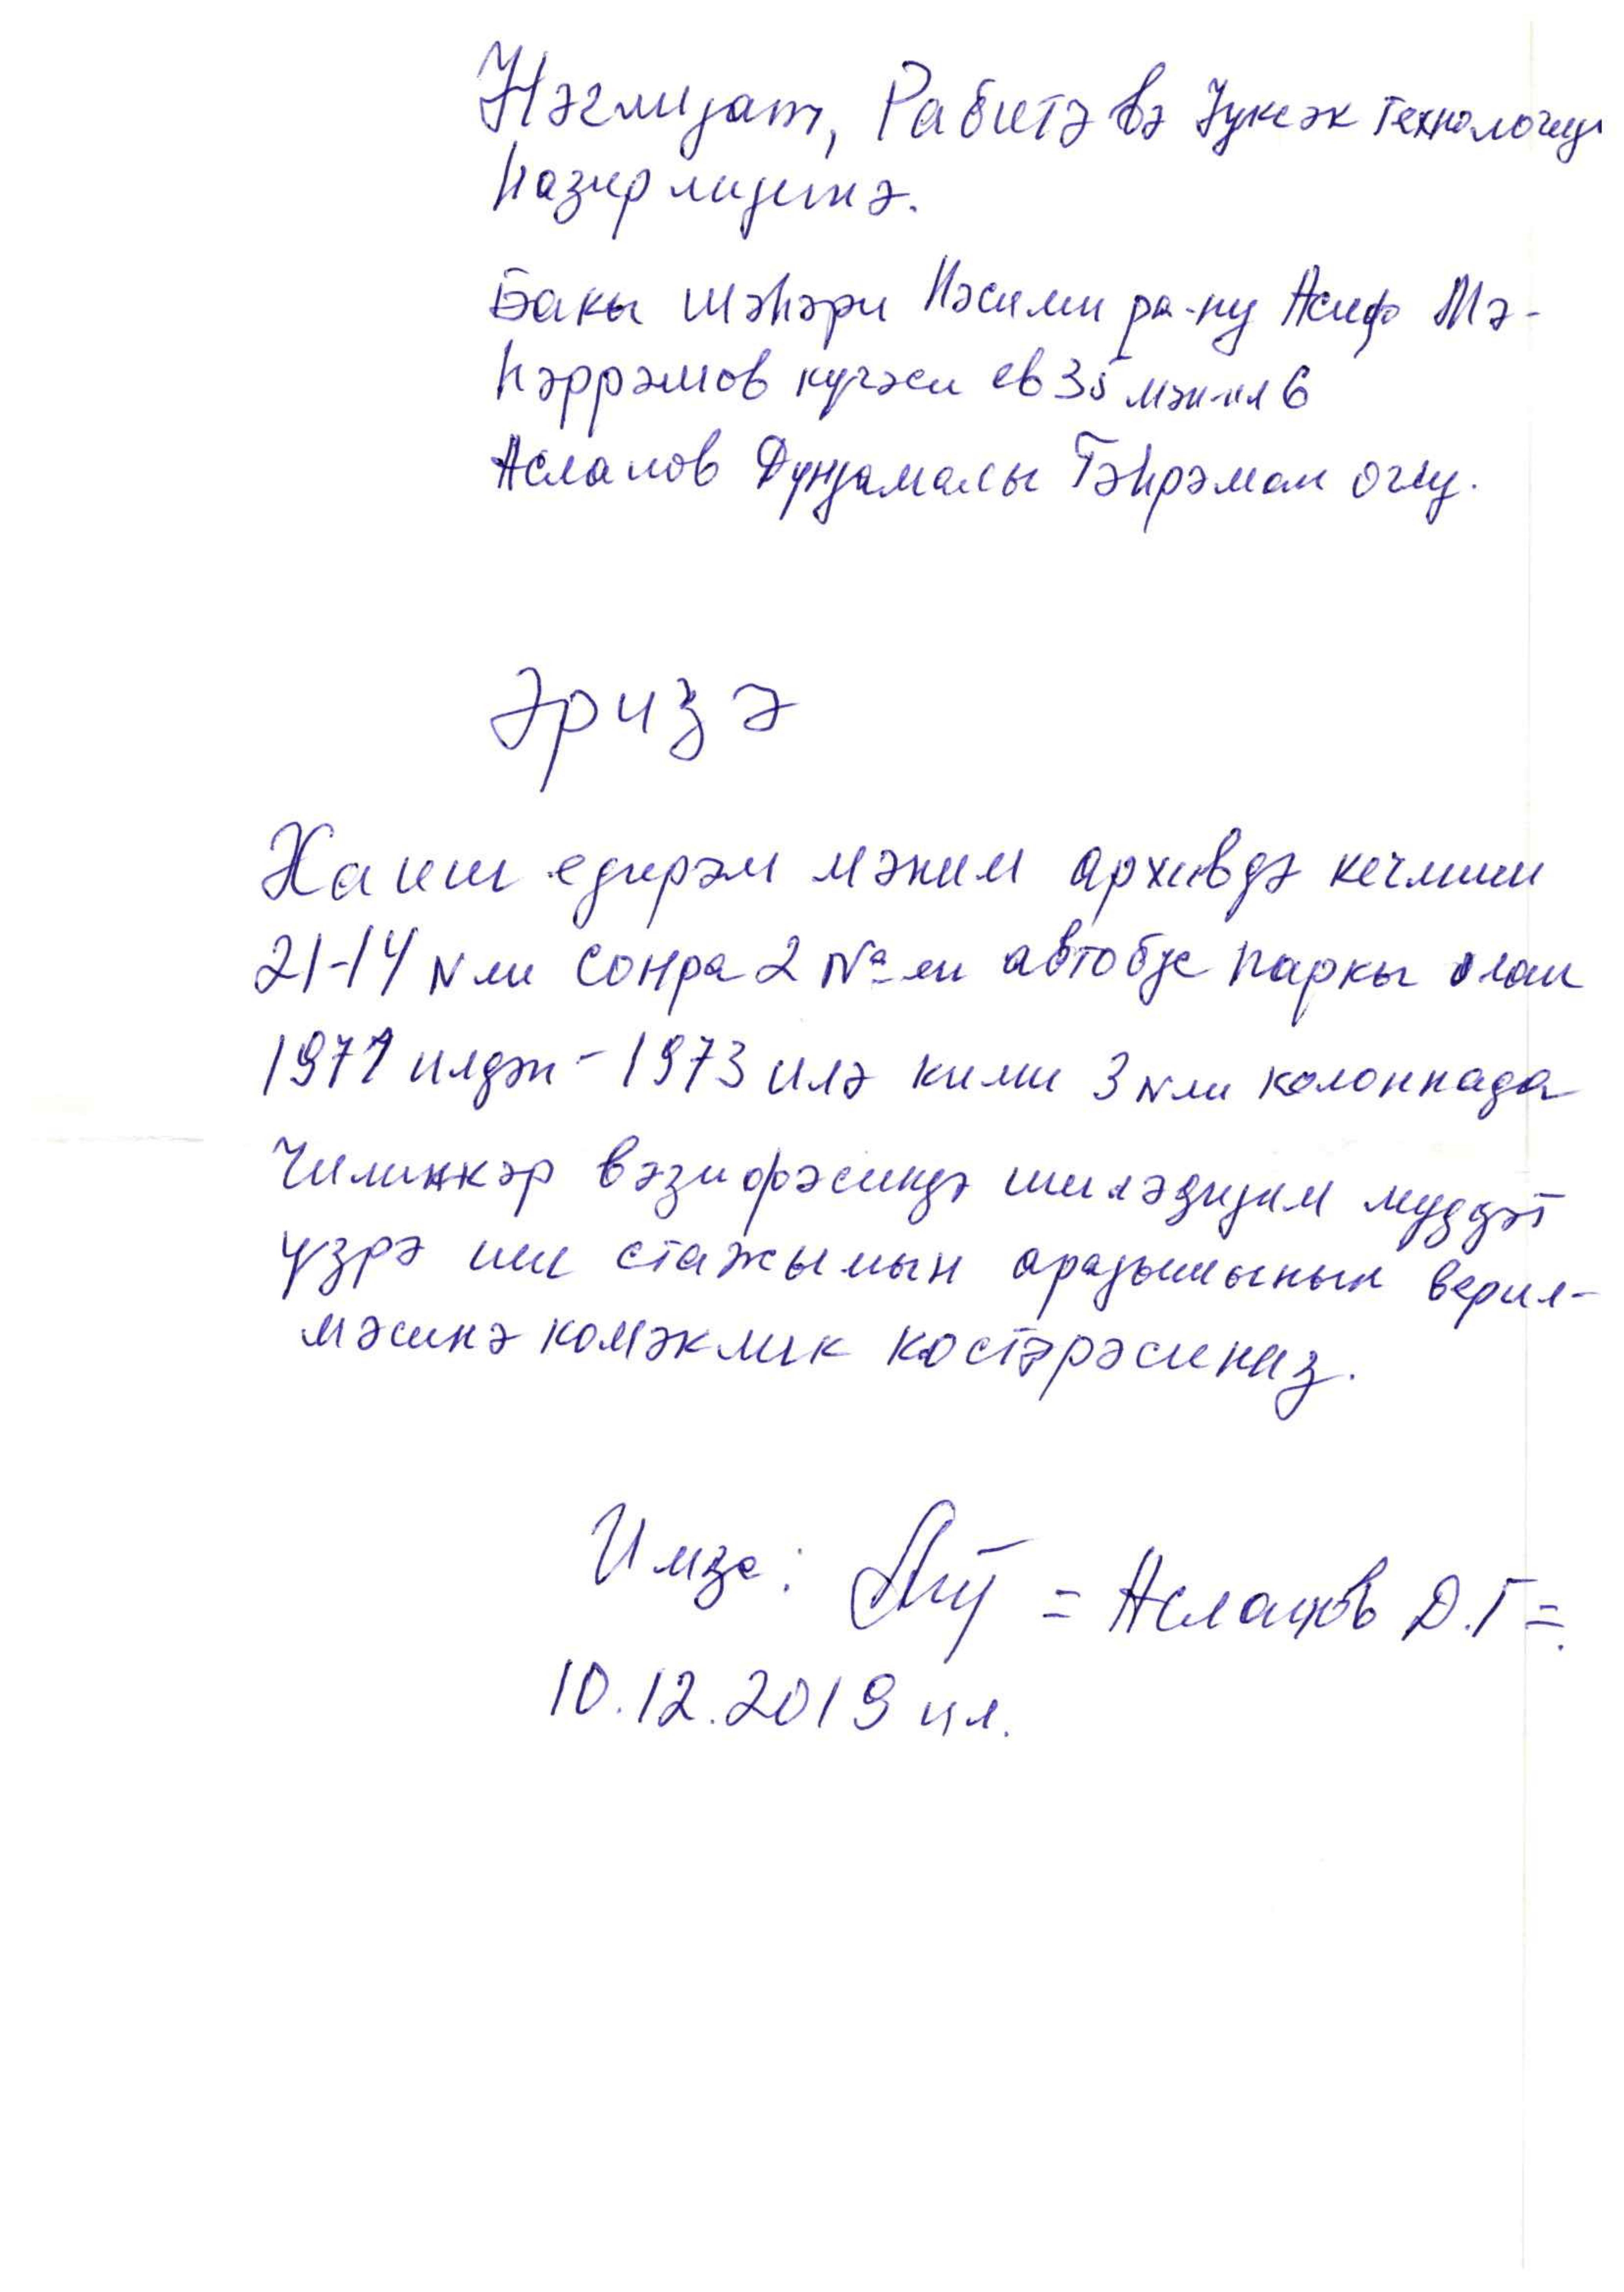 Нәглијат, Рабитә вә Јуксәк Технолоҝија
Назирлијинә.
Бакы шәһәри Нәсими ра-ну Асиф Мә-
һәррәмов кучәси ев 35 мән-ил 6
Асланов Дунјамалы Гәһрәман оғлу.
Әризә
Хаиш едирәм мәним архивдә кечмиш
21-14 N ли сонра 2 № ли автобус паркы олан
1971 илдән - 1973 илә кими 3 N ли колоннада
Чилинкәр вәзифәсиндә ишләдијим муддәт
үзрә иш стажымын арајышынын верил-
мәсинә комәклик костәрәсиниз.
Имза: = Асланов Д.Г =.
10.12.2019 ил.